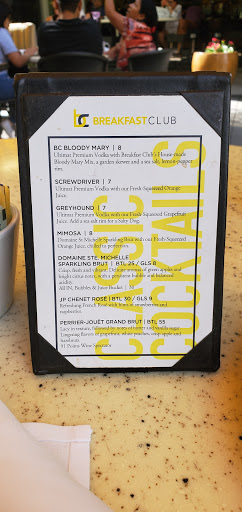 bc BREAKFAST CLUB
BC BLOODY MARY | 8
Ultimat Premium Vodka with Breakfast Club's House-made
Bloody Mary Mix, a garden skewer and a sea salt, lemon-pepper
rim.
SCREWDRIVER | 7
Ultimat Premium Vodka with our Fresh-Squeezed Orange
Juice.
GREYHOUND | 7
Ultimat Premium Vodka with our Fresh-Squeezed Grapefruit
Juice. Add a sea salt rim for a Salty Dog.
MIMOSA | 8
Domaine St Michelle Sparkling Brut with our Fresh-Squeezed
Orange Juice, chilled to perfection.
DOMAINE STE. MICHELLE
SPARKLING BRUT | BTL 25 / GLS 8
Crisp, fresh and vibrant! Delicate aromas of green apples and
bright citrus notes, with a persistent bubble and balanced
acidity.
All IN, Bubbles & Juice Bucket | 30
JP CHENET ROSE | BTL 30 / GLS 9
Refreshing French Rosé with hints of strawberry and
raspberry.
PERRIER-JOUËT GRAND BRUT | BTL 55
Lacy in texture, followed by notes of butter and vanilla sugar.
Lingering flavors of grapefruit, white peaches, crisp apple and
hazelnuts.
91 Points Wine Spectator
CLASSIC
COCKTAILS